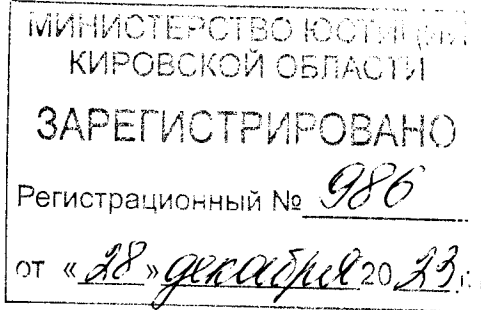 МИНИСТЕРСТВО ЮСТИЦИИ
КИРОВСКОЙ ОБЛАСТИ
ЗАРЕГИСТРИРОВАНО
Регистрационный № 986
от «28» декабря 2023 г.